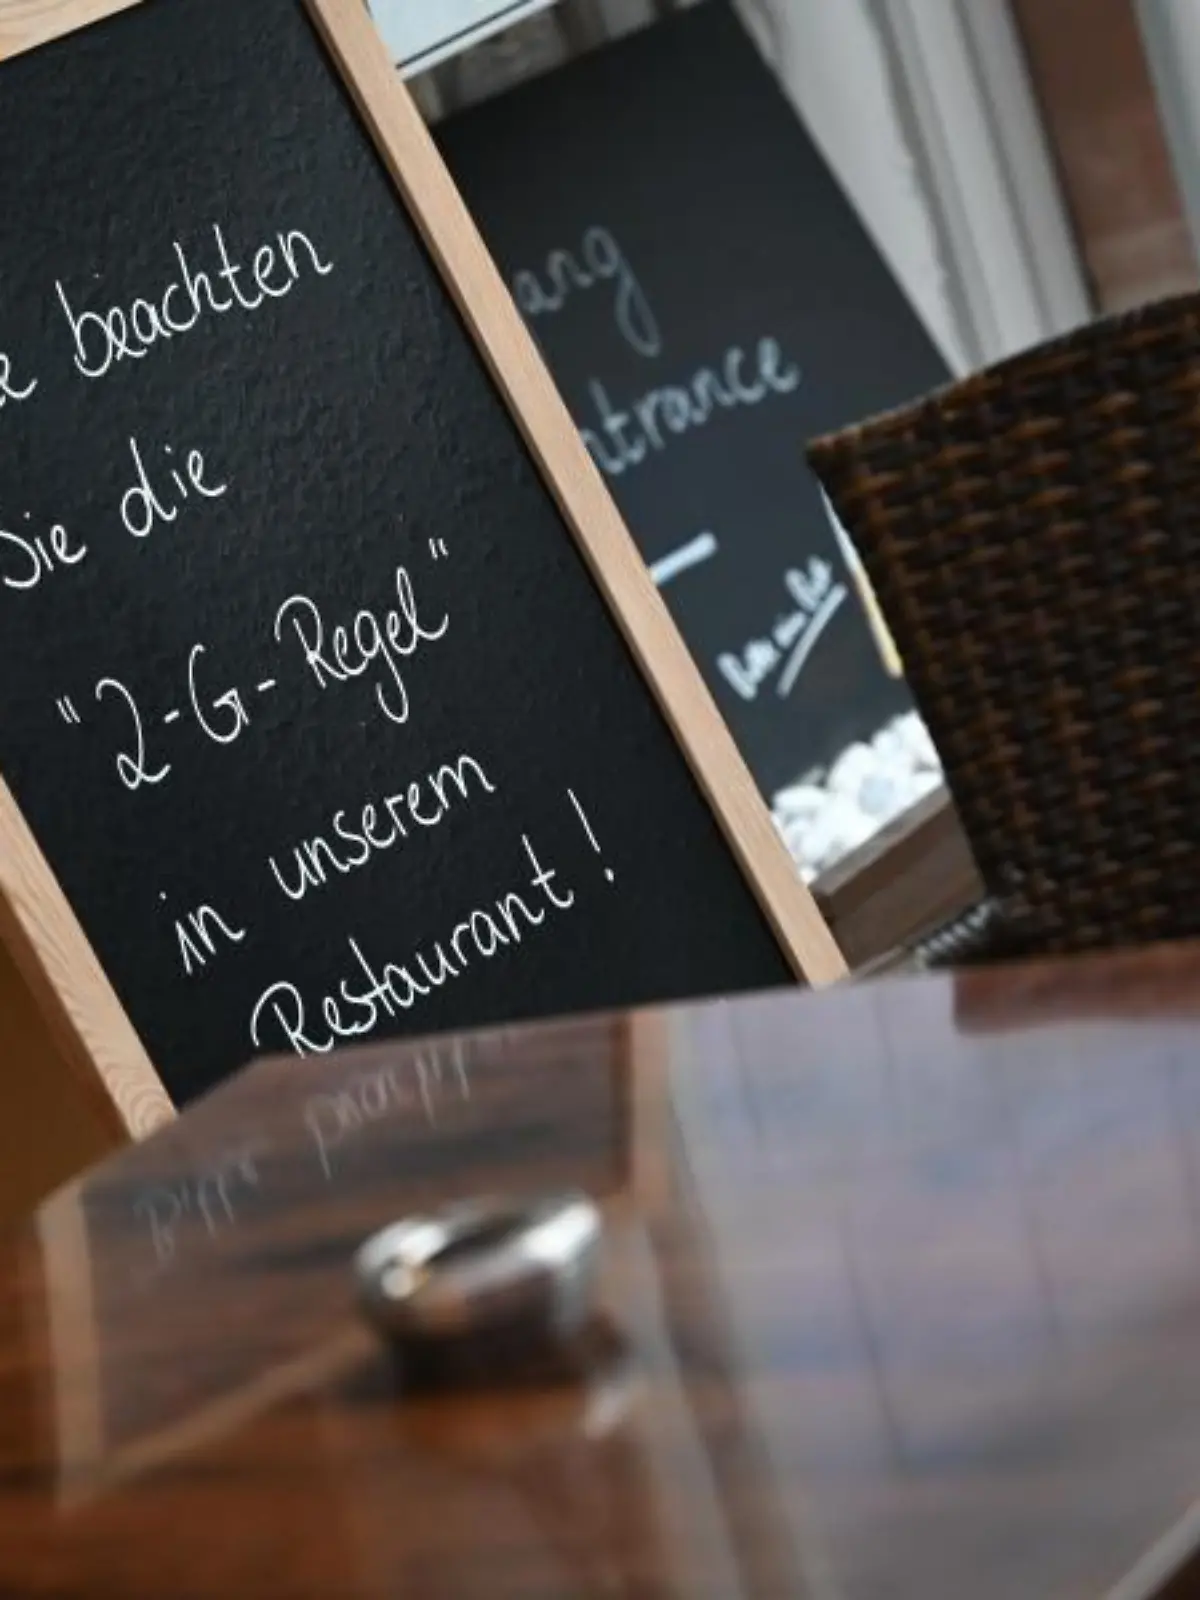 e beachten
Sie die
"2-G-Regel"
in unserem
Restaurant!
ang
ntrance